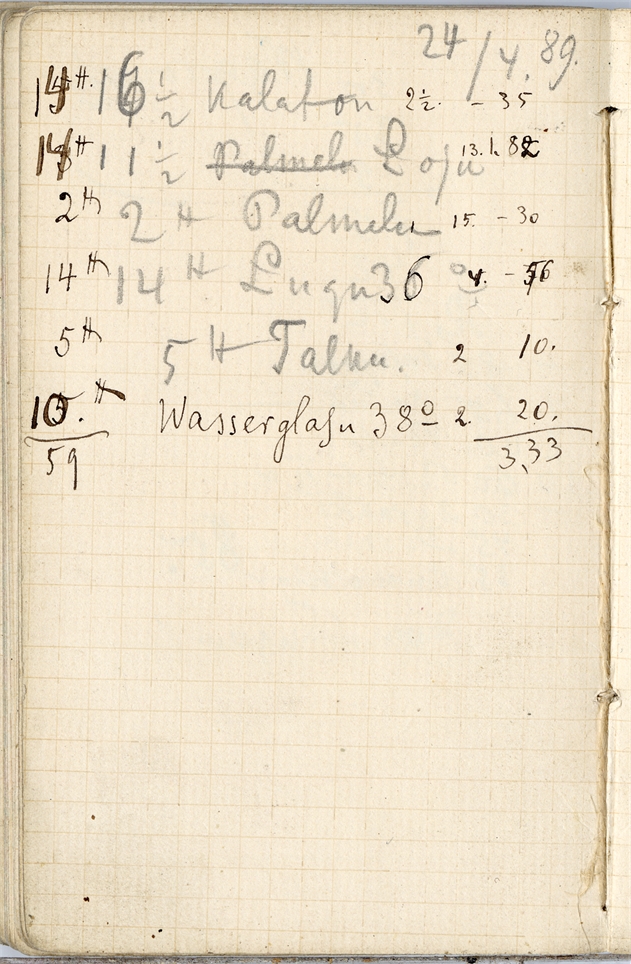 24/4. 89.
14 H. 16 1/2 Kalafon 2½. - 35
11 1/2 Palmeln Loju 13. 1. 82
2 H 2 H Palmeln 15. - 30
14 H 14 H 36 ° 4. - 56
5 H 5 H Talku. 2 10.
10. H Wasserglasn 38° 2. 20.
59 3,33